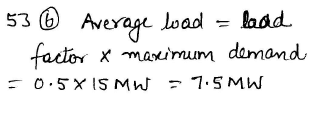 53 (b) Average load = load
factor x maximum demand
= 0.5 x 15 MW = 7.5 MW